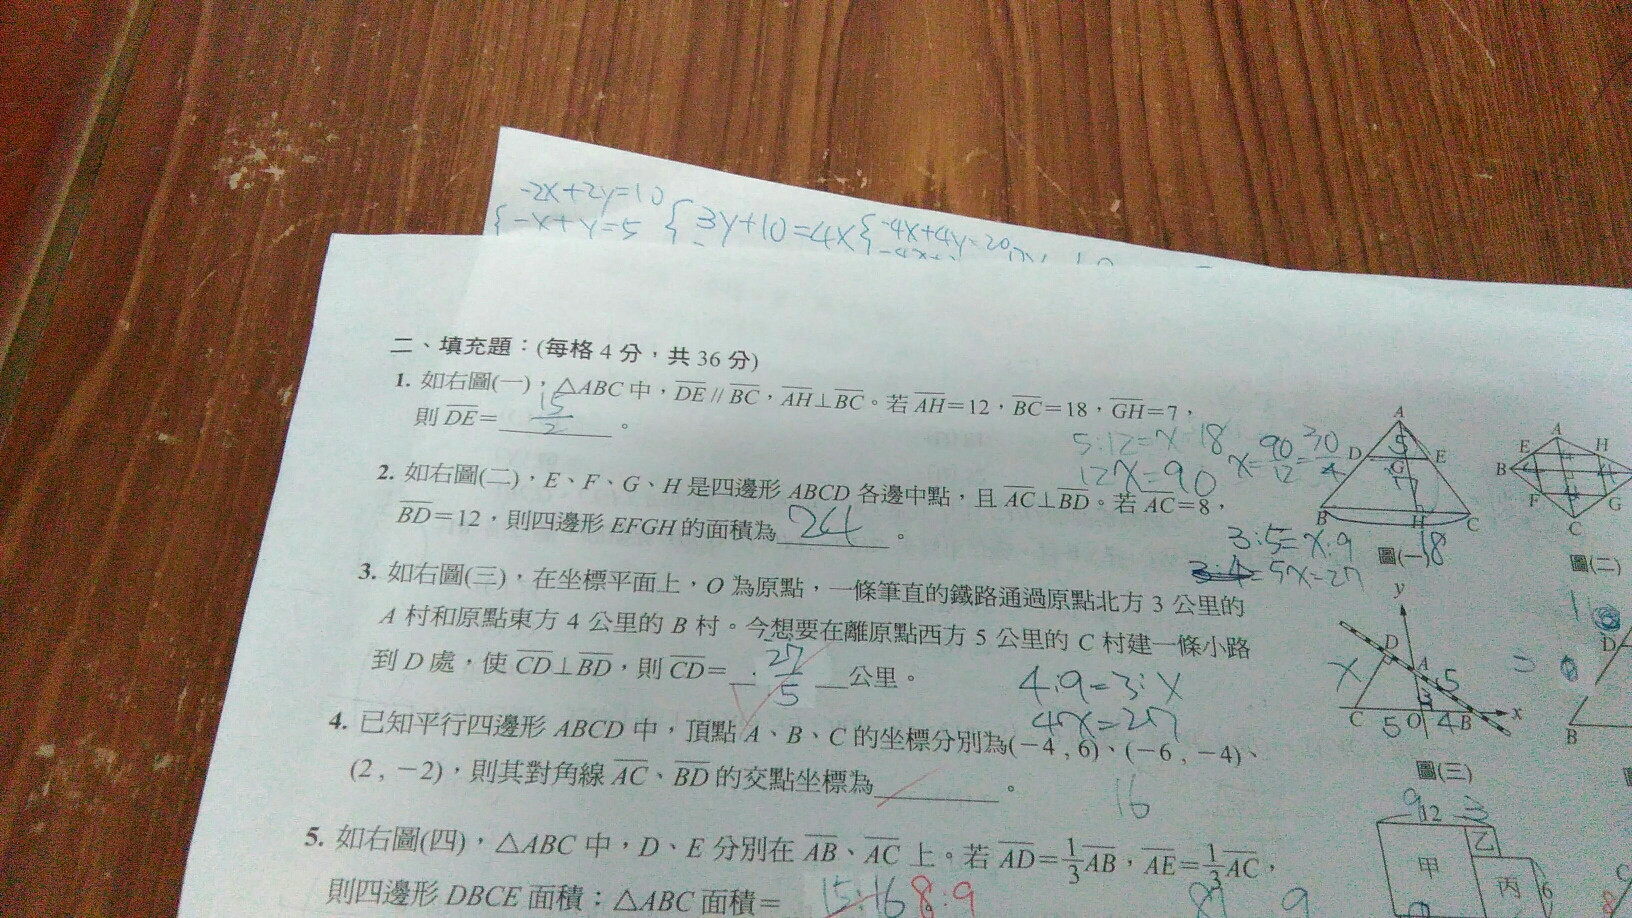 -2x+2y=10
{-x+y=5 {3y+10=4x {-4x+4y=20
二、填充題：(每格 4 分，共 36 分)
1. 如右圖(一)，△ABC 中，DE // BC，AH⊥BC。若 AH=12，BC=18，GH=7，
則 DE= 15/2 。
5:12=x:18
12x=90
x=90/12=30/4
2. 如右圖(二)，E、F、G、H 是四邊形 ABCD 各邊中點，且 AC⊥BD。若 AC=8，
BD=12，則四邊形 EFGH 的面積為 24 。
3:5=x:9
5x=27
3. 如右圖(三)，在坐標平面上，O 為原點，一條筆直的鐵路通過原點北方 3 公里的
A 村和原點東方 4 公里的 B 村。今想要在離原點西方 5 公里的 C 村建一條小路
到 D 處，使 CD⊥BD，則 CD= 27/5 公里。
4:9=3:x
4x=27
4. 已知平行四邊形 ABCD 中，頂點 A、B、C 的坐標分別為(－4 , 6)、(－6 , －4)、
(2 , －2)，則其對角線 AC、BD 的交點坐標為 。
16
5. 如右圖(四)，△ABC 中，D、E 分別在 AB、AC 上。若 AD=1/3AB，AE=1/3AC，
則四邊形 DBCE 面積：△ABC 面積= 15:16 8:9
A
5
D G E
7
B H C
圖(一) 18
A
E H
B
F G
C
圖(二)
y
D A 5
x 3
C 5 O 4 B x
圖(三)
D
B
9 12 3
甲 乙
丙 6